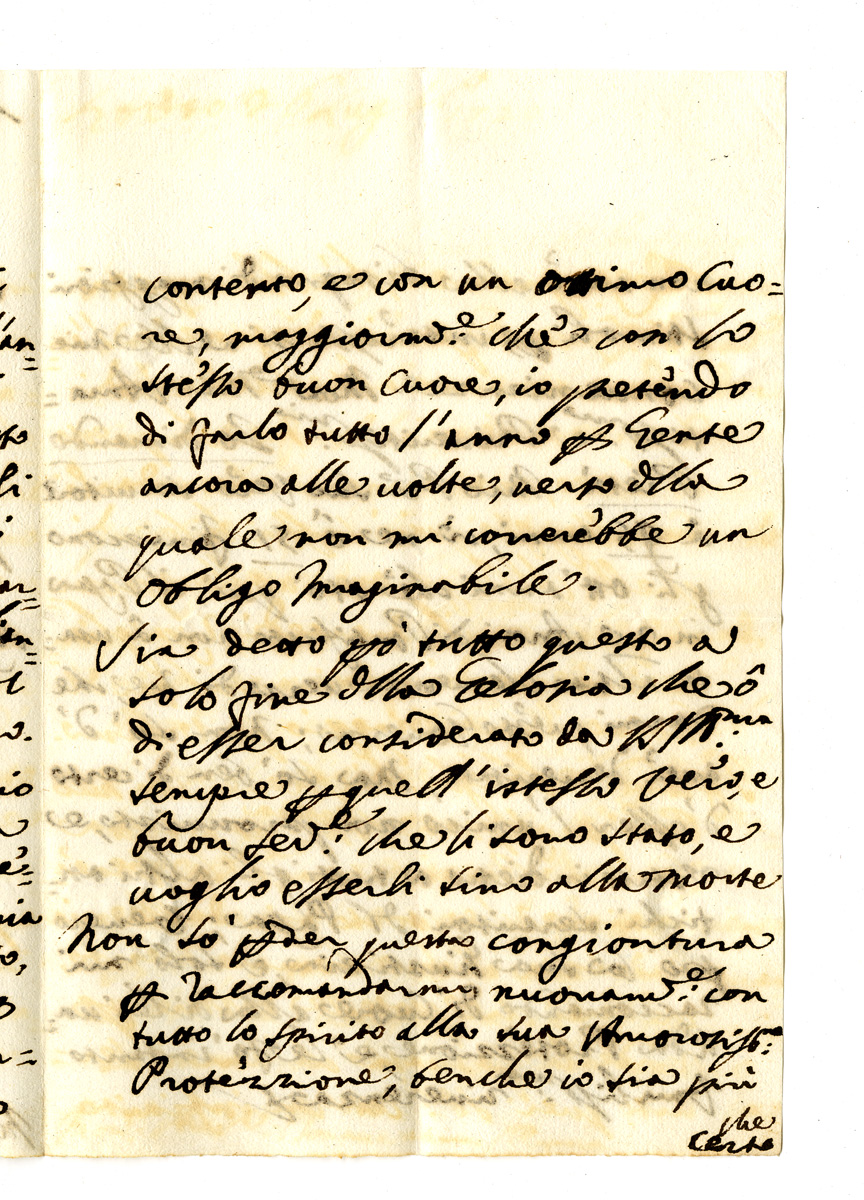 contento, e con un ottimo Cuo=
re, maggiorm.e che con lo
stesso buon Cuore, io pretendo
di farlo tutto l'anno p Gente
ancora alle volte, verso dlla
quale non mi correrebbe un
obligo Imaginabile.
Sia detto pò tutto questo a
solo fine dlla Gelosia che ô
di esser considerato da
sempre p quell'istesso vero, e
buon Ser.e che li sono stato, e
voglio esserli sino alla morte
Non sò pder questa congiontura
p raccomandarmi nuovam.e con
tutto lo spirito alla sua Amorosiss.ma
Protezzione, benche io sia più
che
certo